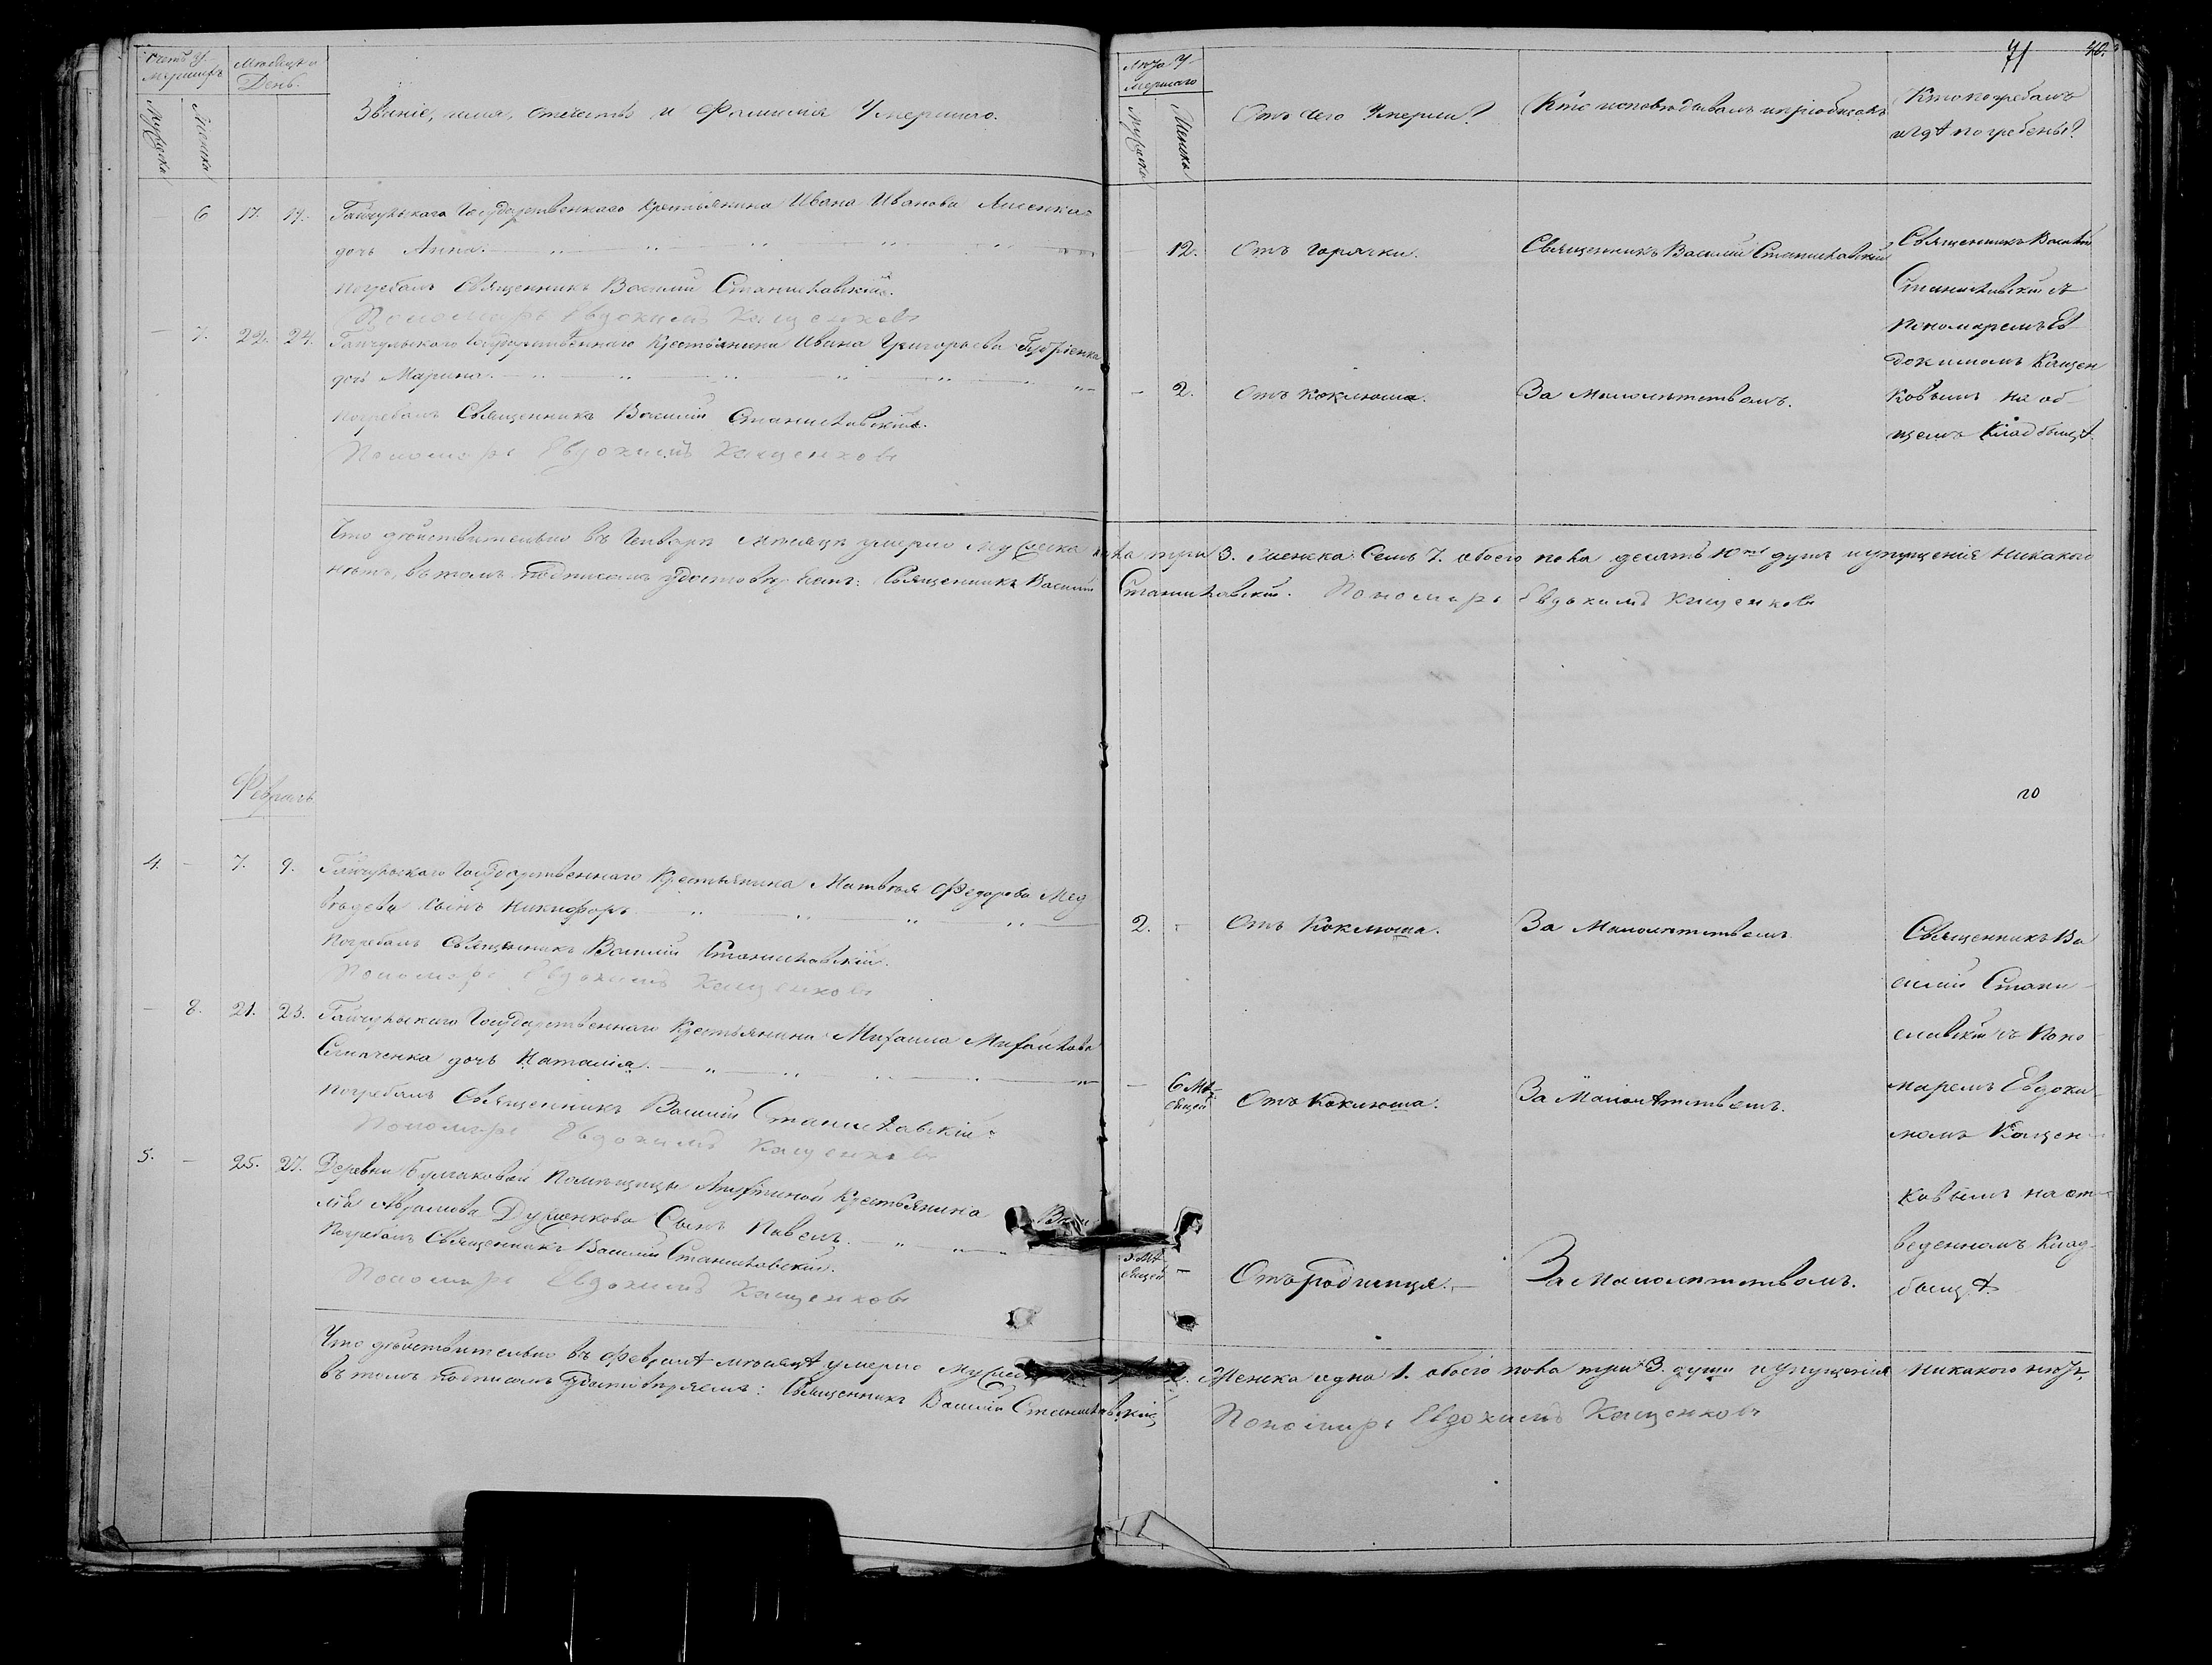 Счетъ у-
мершихъ
Мѣсяцъ и
День.
Мужеска
Женска
Званіе, имя, отечество и Фамилія Умершаго.
6 17. 19. Гайчульскаго Государственнаго Крестьянина Ивана Иванова
дочь Анна.
Погребалъ Священникъ Василій Станиславскій.
Пономарь Евдокимъ Кащенковъ
7. 22. 24. Гайчульскаго Государственнаго Крестьянина Ивана Григорьева
дочь Марина.
Погребалъ Священникъ Василій Станиславскій.
Пономарь Евдокимъ Кащенковъ
Что действительно въ Генварѣ мѣсяцѣ умерло Мужеска
нѣтъ, въ томъ подписомъ удостовѣряемъ: Священникъ Василій
Февраль
4. - 7. 9. Гайчульскаго Государственнаго Крестьянина Матвѣя Федорова Мед
вѣдева Сынъ Никифоръ
Погребалъ Священникъ Василій Станиславскій.
Пономарь Евдокимъ Кащенковъ
- 8. 21. 23. Гайчульскаго Государственнаго Крестьянина Михаила Михайлова
дочь Наталія.
Погребалъ Священникъ Василій Станиславскій.
Пономарь Евдокимъ Кащенковъ
5. - 25. 27. Деревни Булгаковой Помѣщицы Крестьянина
Аврамова Сынъ Павелъ.
Погребалъ Священникъ Василій Станиславскій.
Пономарь Евдокимъ Кащенковъ
Что действительно въ Февралѣ мѣсяцѣ умерло
въ томъ подписомъ удостовѣряемъ: Священникъ Василій Станиславскій,
71
Лѣта у-
мершаго
Мужеска
Женска
Отъ чего Умерли?
Кто исповѣдывалъ и пріобщалъ
Кто погребалъ
и гдѣ погребены?
- 12. Отъ горячки. Священникъ Василій Станиславскій
Священникъ Василій
Станиславскій съ
Пономаремъ Ев
докимомъ Кащен
ковымъ на об-
щемъ Кладбищѣ.
- 2. Отъ коклюша. За Малолѣтствомъ.
пола три 3. Женска Семь 7. обоего пола десять 10ть душъ и упущенія никакого
Станиславскій. Пономарь Евдокимъ Кащенковъ
2. - Отъ Коклюша. За Малолѣтствомъ
Священникъ Ва
силій Стани-
славскій съ Поно-
маремъ Евдоки-
момъ Кащен-
ковымъ на от-
веденномъ Клад-
бищѣ.
- 6 Мѣ-
сяцей Отъ Коклюша. За Малолѣтствомъ.
3 Мѣ-
сяцей - Отъ родимца. - За Малолѣтствомъ.
2. Женска одна 1. обоего пола три 3. души и упущенія никакого нѣтъ,
Пономарь Евдокимъ Кащенковъ